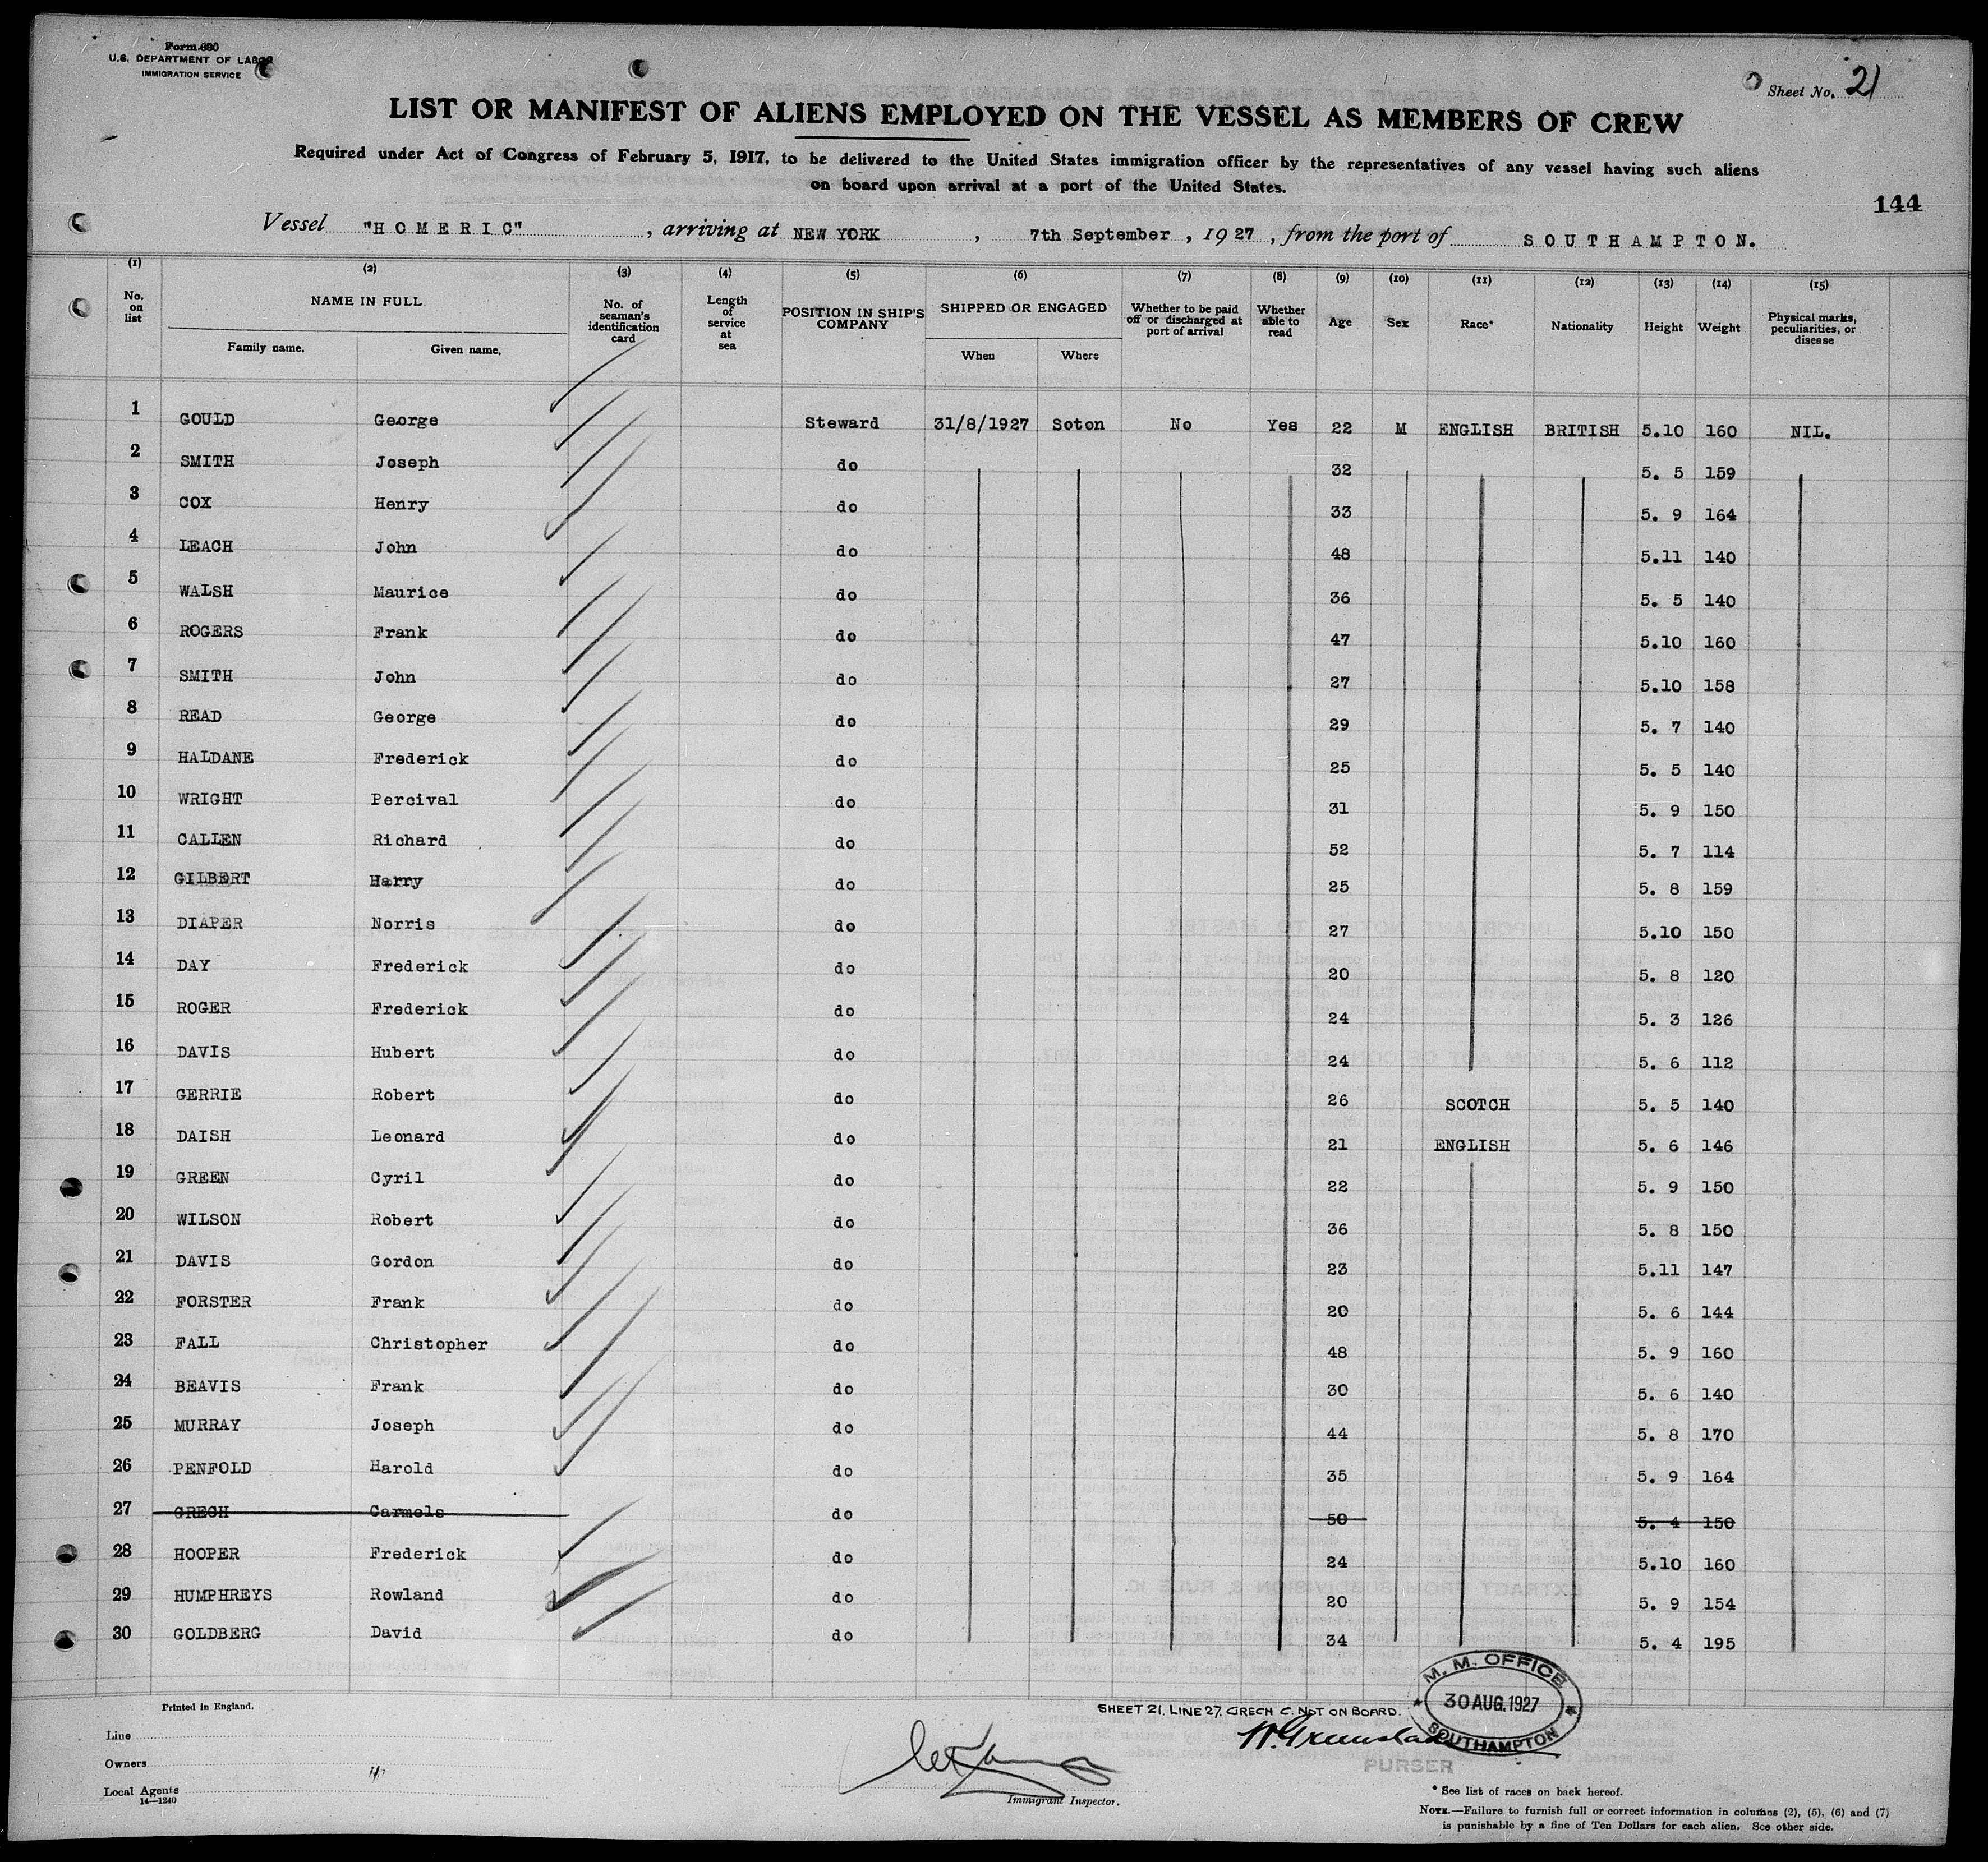 Form 680
U.S. DEPARTMENT OF LABOR
IMMIGRATION SERVICE
Sheet No. 21
LIST OR MANIFEST OF ALIENS EMPLOYED ON THE VESSEL AS MEMBERS OF CREW
Required under Act of Congress of February 5, 1917, to be delivered to the United States immigration officer by the representatives of any vessel having such aliens
on board upon arrival at a port of the United States.
144
Vessel "HOMERIC", arriving at NEW YORK, 7th September, 1927, from the port of SOUTHAMPTON.
(1) (2) (3) (4) (5) (6) (7) (8) (9) (10) (11) (12) (13) (14) (15)
No. on list NAME IN FULL Family name. Given name. No. of seaman's identification card Length of service at sea POSITION IN SHIP'S COMPANY SHIPPED OR ENGAGED When Where Whether to be paid off or discharged at port of arrival Whether able to read Age Sex Race* Nationality Height Weight Physical marks, peculiarities, or disease
1 GOULD George Steward 31/8/1927 Soton No Yes 22 M ENGLISH BRITISH 5.10 160 NIL.
2 SMITH Joseph do 32 5. 5 159
3 COX Henry do 33 5. 9 164
4 LEACH John do 48 5.11 140
5 WALSH Maurice do 36 5. 5 140
6 ROGERS Frank do 47 5.10 160
7 SMITH John do 27 5.10 158
8 READ George do 29 5. 7 140
9 HALDANE Frederick do 25 5. 5 140
10 WRIGHT Percival do 31 5. 9 150
11 CALLEN Richard do 52 5. 7 114
12 GILBERT Harry do 25 5. 8 159
13 DIAPER Norris do 27 5.10 150
14 DAY Frederick do 20 5. 8 120
15 ROGER Frederick do 24 5. 3 126
16 DAVIS Hubert do 24 5. 6 112
17 GERRIE Robert do 26 SCOTCH 5. 5 140
18 DAISH Leonard do 21 ENGLISH 5. 6 146
19 GREEN Cyril do 22 5. 9 150
20 WILSON Robert do 36 5. 8 150
21 DAVIS Gordon do 23 5.11 147
22 FORSTER Frank do 20 5. 6 144
23 FALL Christopher do 48 5. 9 160
24 BEAVIS Frank do 30 5. 6 140
25 MURRAY Joseph do 44 5. 8 170
26 PENFOLD Harold do 35 5. 9 164
27 GRECH Carmels do 50 5. 4 150
28 HOOPER Frederick do 24 5.10 160
29 HUMPHREYS Rowland do 20 5. 9 154
30 GOLDBERG David do 34 5. 4 195
Printed in England.
SHEET 21. LINE 27. GRECH C. NOT ON BOARD.
M. M. OFFICE
30 AUG. 1927
SOUTHAMPTON
PURSER
Line
Owners
Local Agents
14—1240
Immigrant Inspector.
* See list of races on back hereof.
NOTE.—Failure to furnish full or correct information in columns (2), (5), (6) and (7)
is punishable by a fine of Ten Dollars for each alien. See other side.